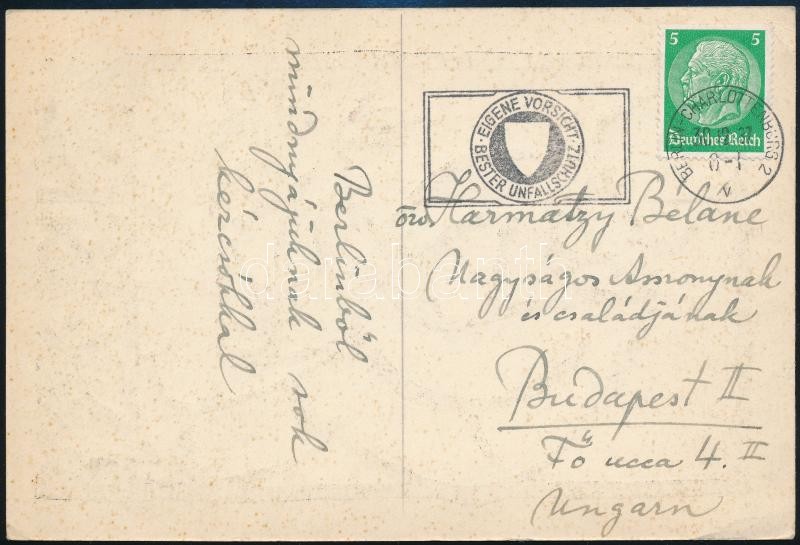 Berlinből
mindnyájuknak sok
kézcsókkal
EIGENE VORSICHT · BESTER UNFALLSCHUTZ ·
5 5
Deutsches Reich
BERLIN-CHARLOTTENBURG 2
özv. Harmatzy Béláné
Nagyságos Asszonynak
és családjának
Budapest II
Fő ucca 4. II
Ungarn
darabanth